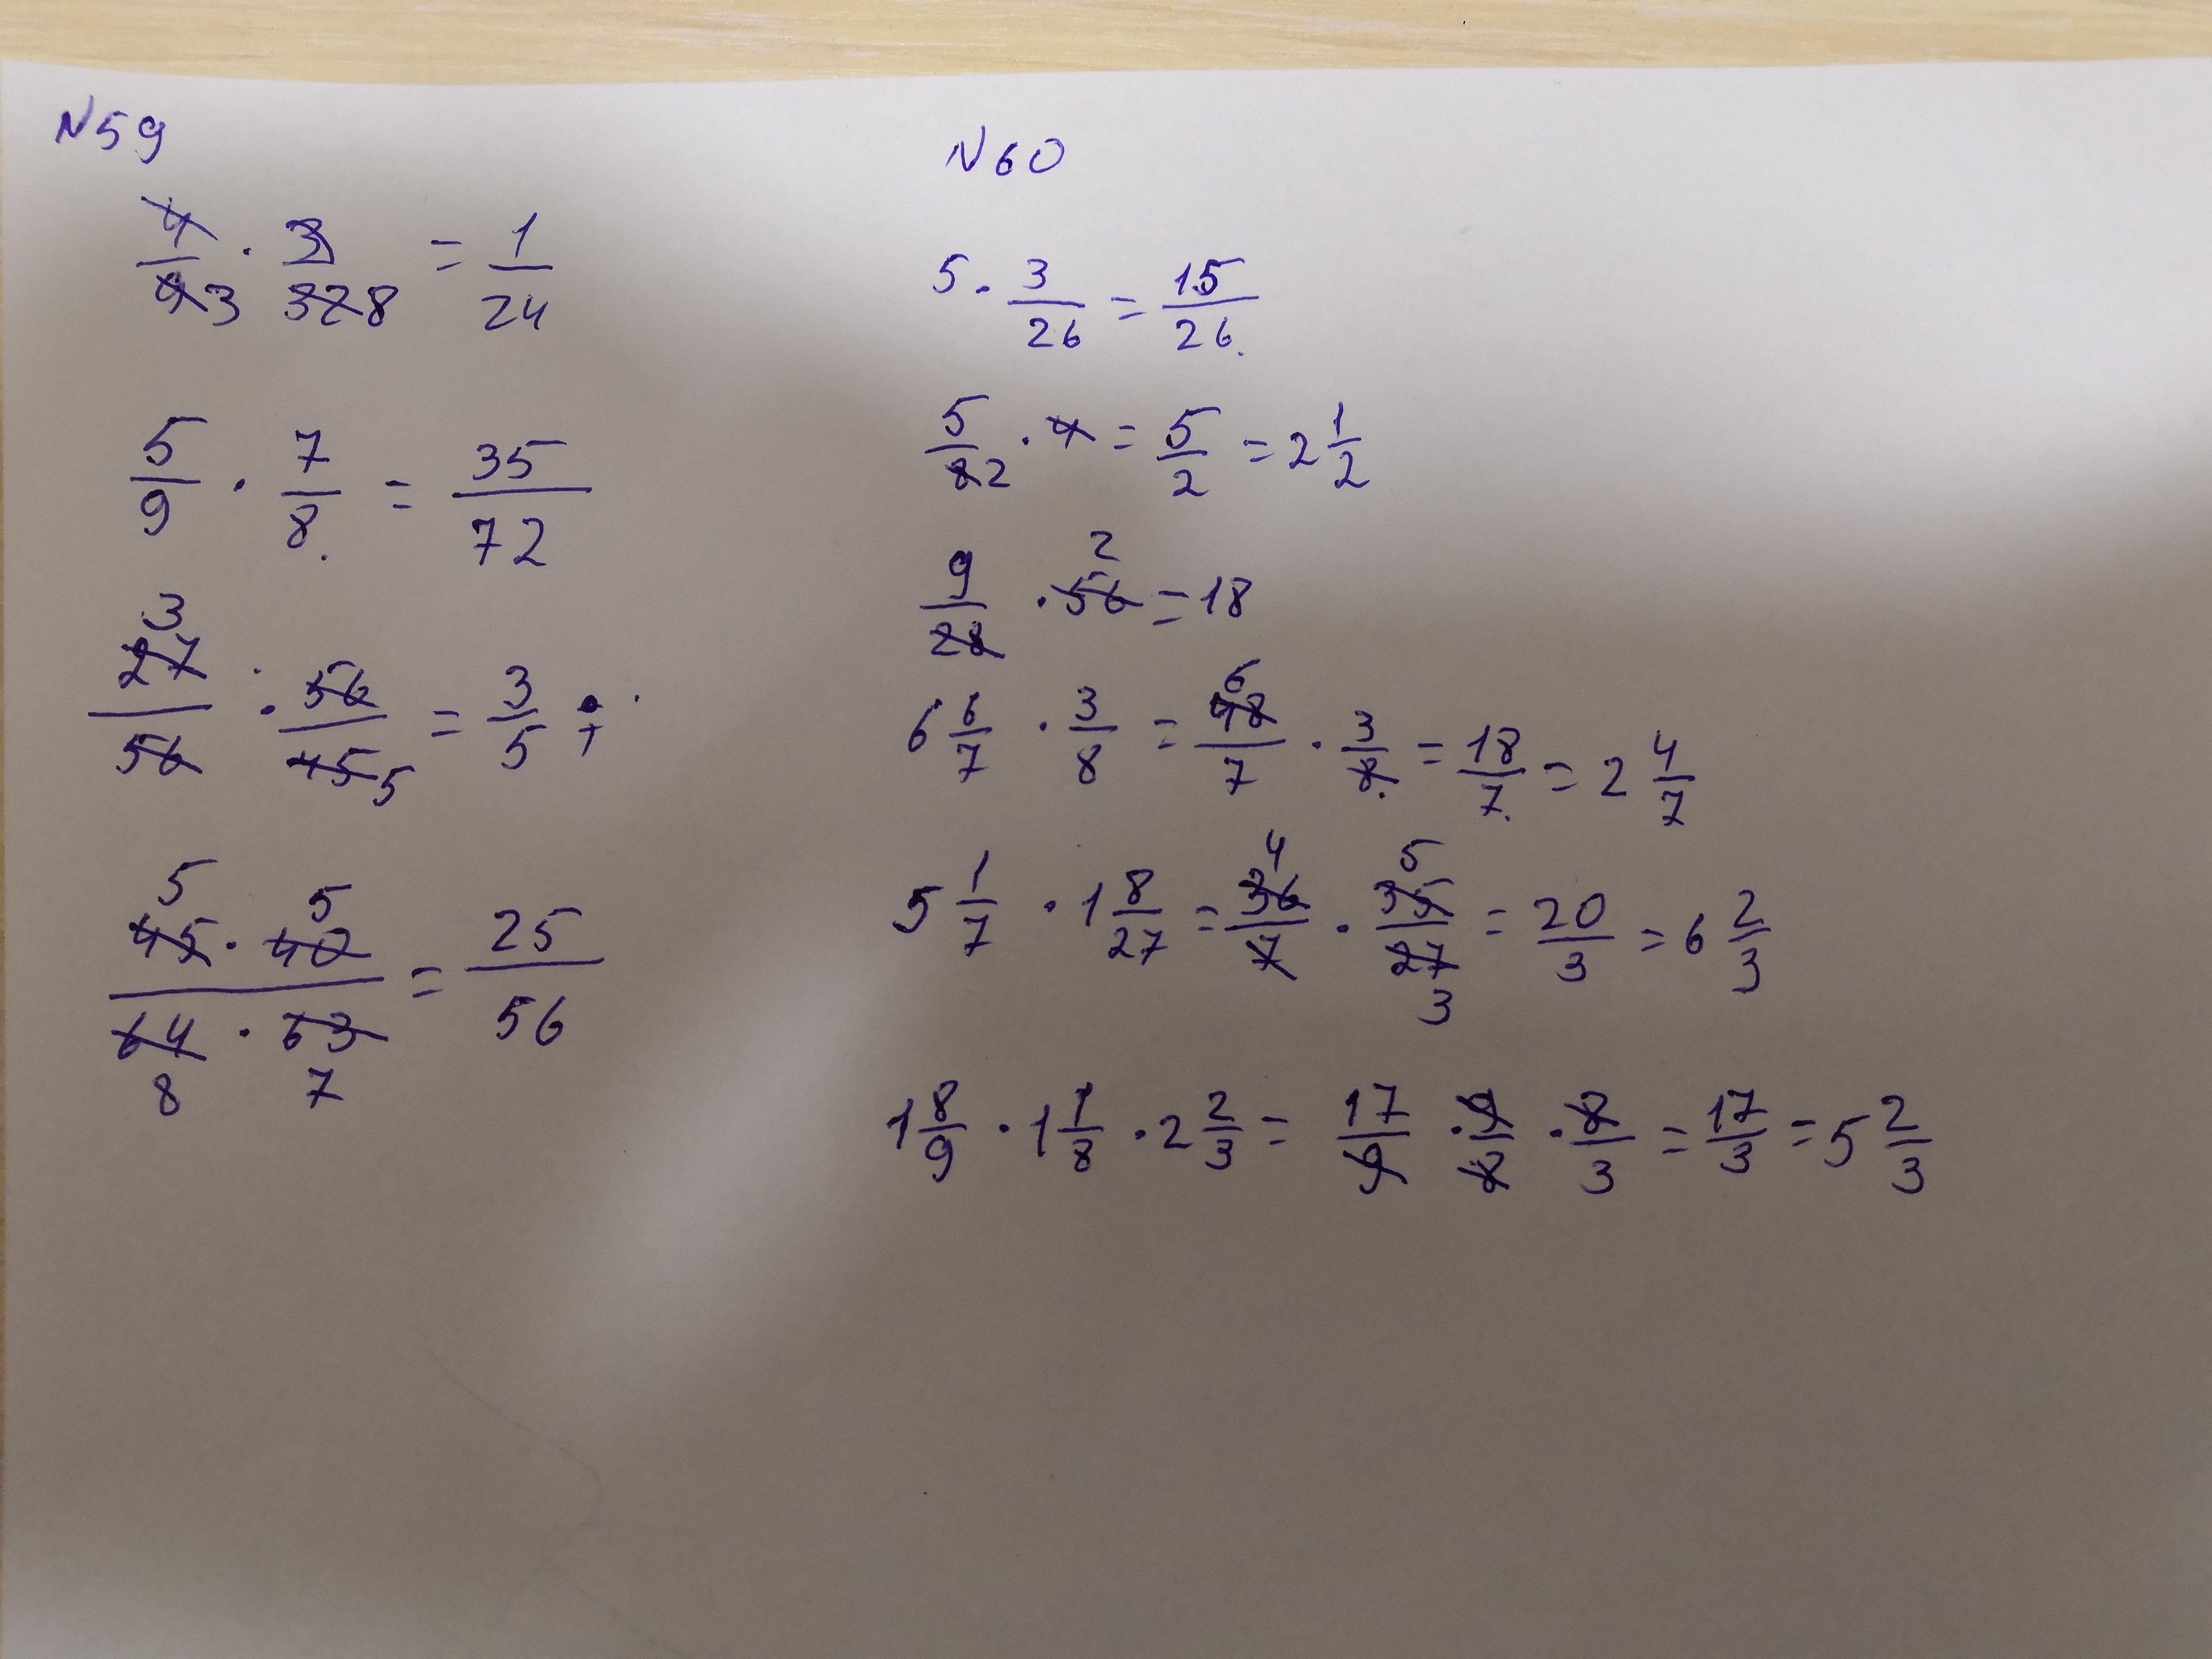 N59
4/9 3 · 3/32 8 = 1/24
5/9 · 7/8 = 35/72
3 27/56 · 56/45 5 = 3/5
5 45 · 5 40 / 64 8 · 63 7 = 25/56
N60
5 · 3/26 = 15/26
5/8 2 · 4 = 5/2 = 2 1/2
9/28 · 56 2 = 18
6 6/7 · 3/8 = 6 48/7 · 3/8 = 18/7 = 2 4/7
5 1/7 · 1 8/27 = 4 36/7 · 5 35/27 3 = 20/3 = 6 2/3
1 8/9 · 1 1/8 · 2 2/3 = 17/9 · 9/8 · 8/3 = 17/3 = 5 2/3